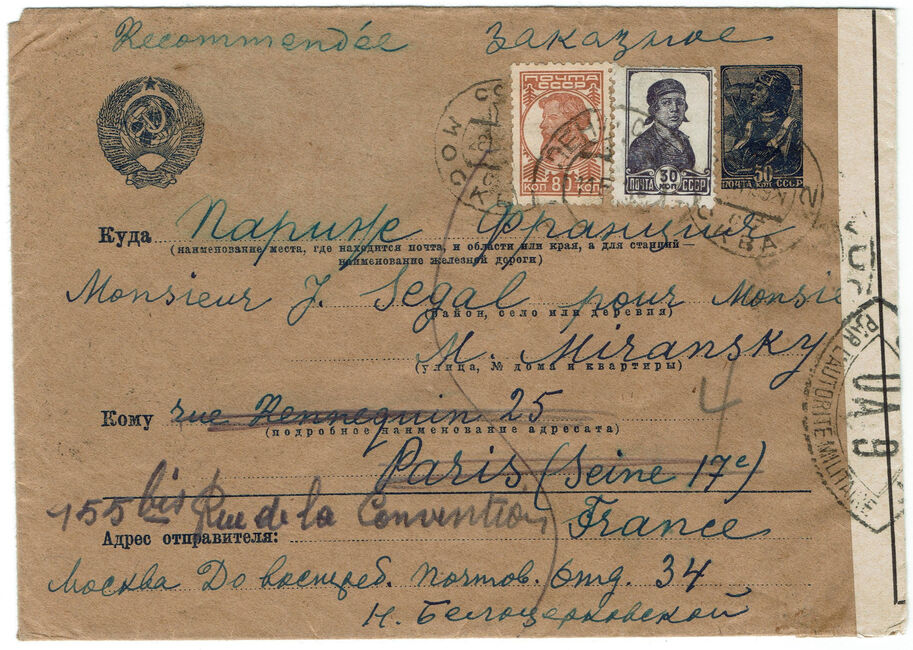 Recommendée Заказное
ПОЧТА
СССР
КОП 80 КОП
30
КОП
ПОЧТА СССР
50
ПОЧТА КОП СССР
MOSCOW
МОСКВА
Куда Париж Франция
(наименование места, где находится почта, и области или края, а для станций—
наименование железной дороги)
Monsieur J. Segal pour Monsie
(район, село или деревня)
M. Miransky
(улица, № дома и квартиры)
4
Кому rue Rennequin 25
(подробное наименование адресата)
Paris (Seine 17e)
155 bis Rue de la Convention
France
Адрес отправителя:
Москва До востреб. почтов. отд. 34
Н. Белоцерковской
PAR L'AUTORITE MILITAIRE
UA 9